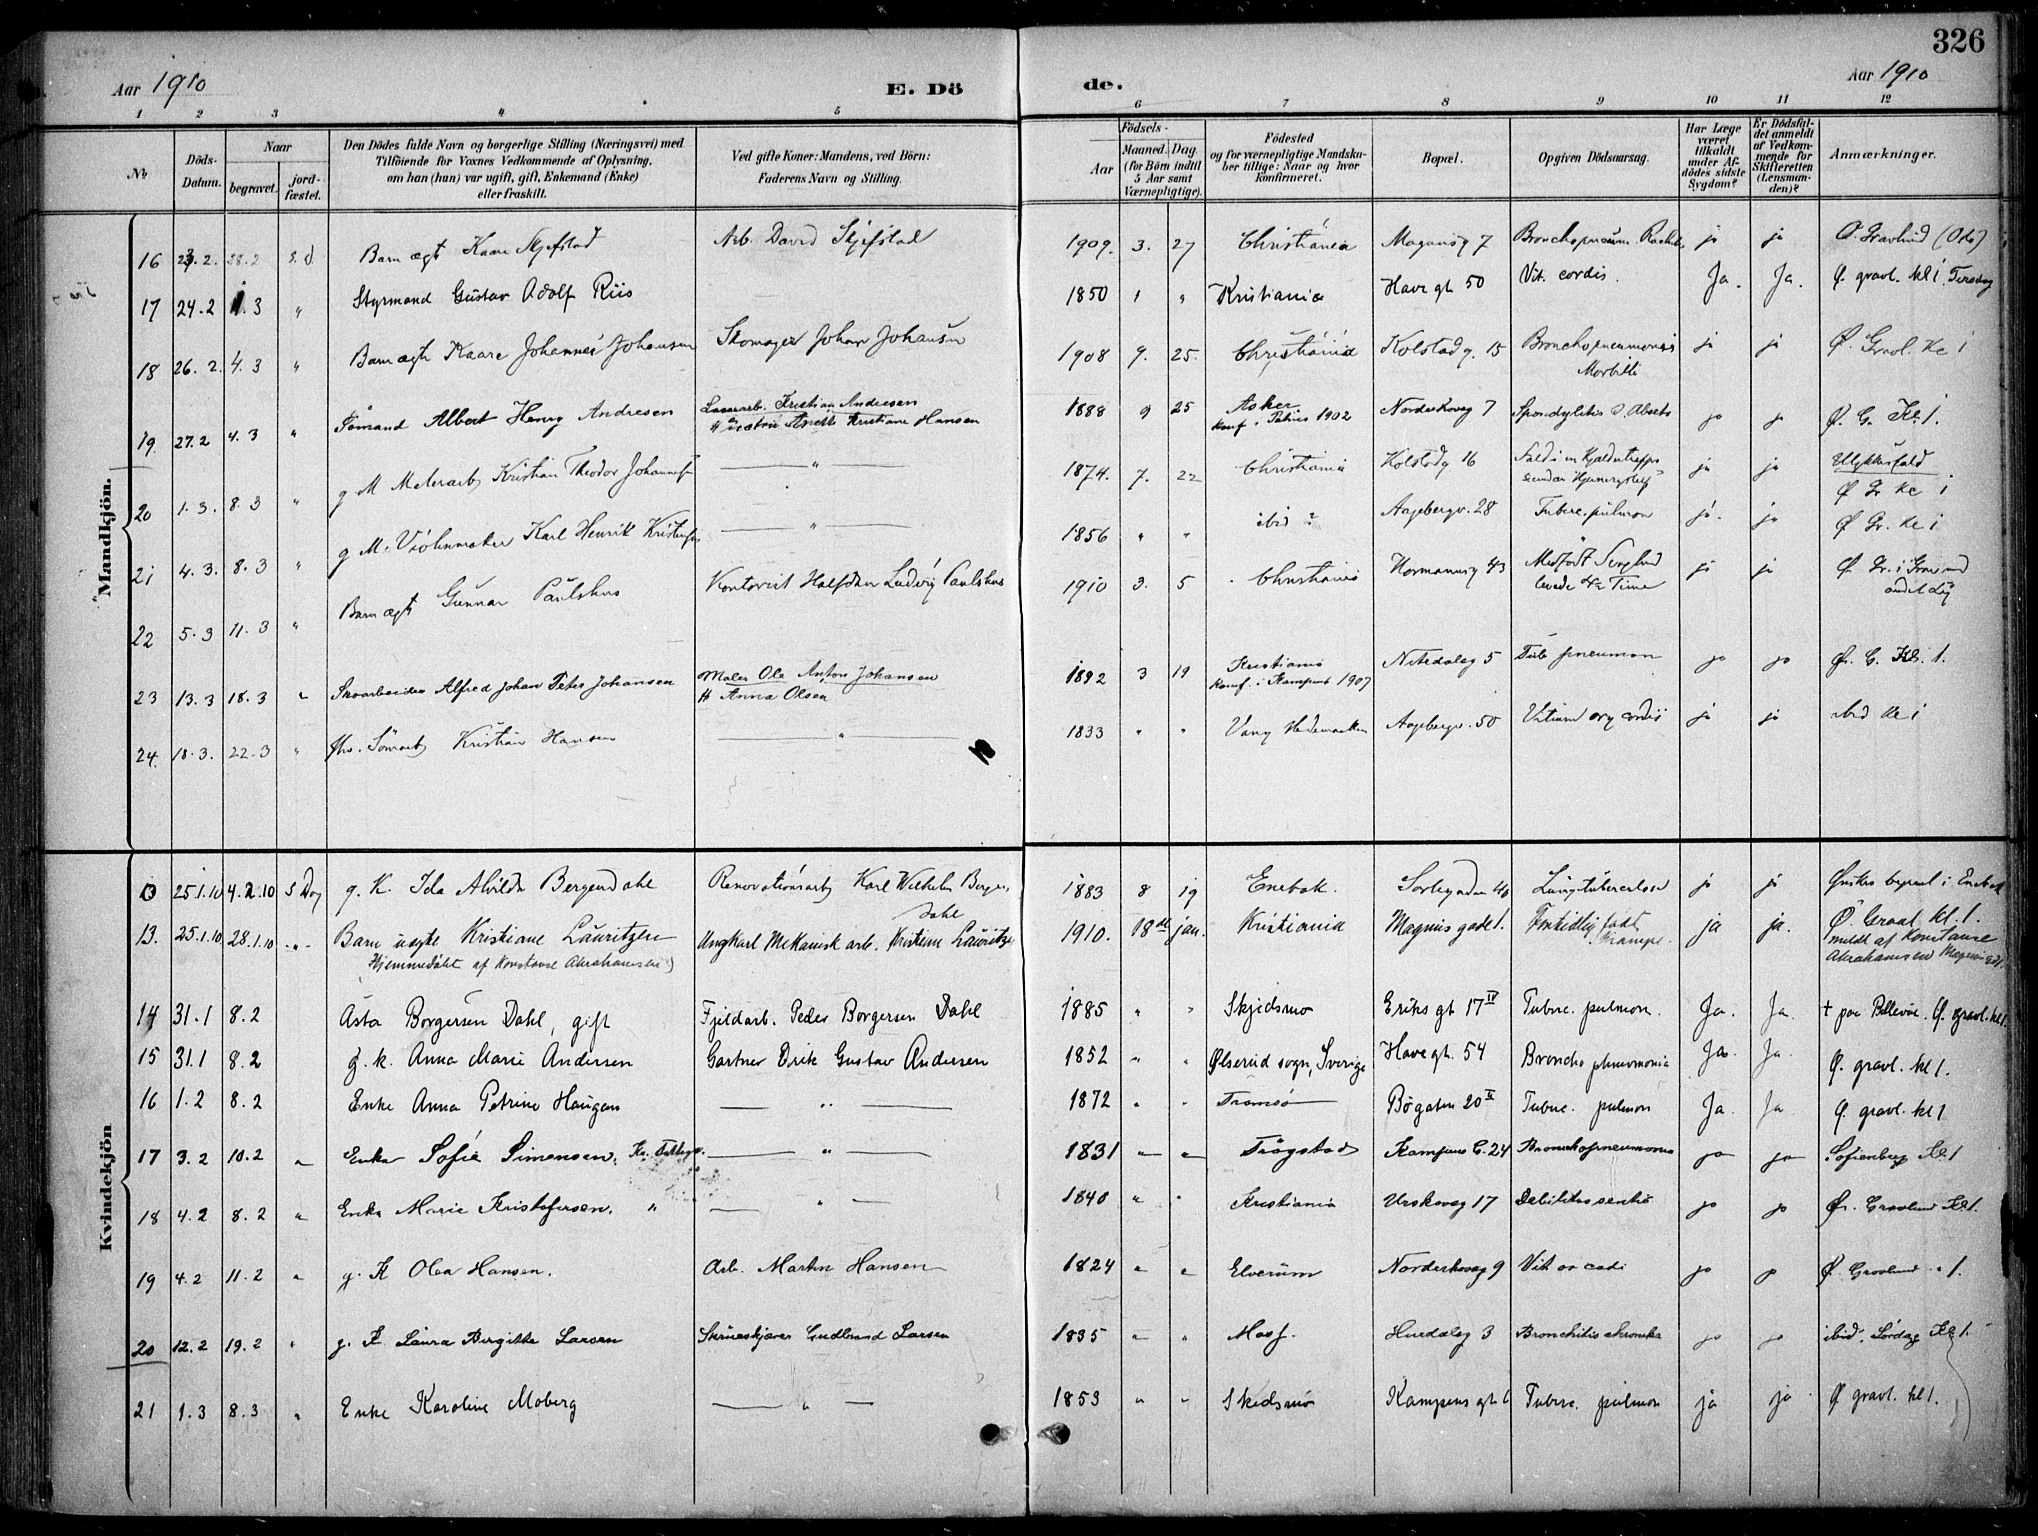 326
Aar 1910 E. Dö de. Aar 1910
1 2 3 4 5 6 7 8 9 10 11 12
No
Döds-Datum.
Naar begravet. jordfæstet.
Den Dödes fulde Navn og borgerlige Stilling (Næringsvei) med Tilföiende for Voxnes Vedkommende af Oplysning, om han (hun) var ugift, gift, Enkemand (Enke) eller fraskilt.
Ved gifte Koner: Mandens, ved Börn: Faderens Navn og Stilling.
Födsels- Aar Maaned. Dag (for Börn indtil 5 Aar samt Værnepligtige).
Födested og for værnepligtige Mandskaber tillige: Naar og hvor konfirmeret.
Bopæl.
Opgiven Dödsaarsag.
Har Læge været tilkaldt under Afdödes sidste Sygdom?
Er Dödsfaldet anmeldt af Vedkommende for Skifteretten (Lensmanden)?
Anmærkninger.
Mandkjön.
16 23.2. 28.2 s.d Barn ægt Kaare Skjefstad Arb. David Skjefstad 1909. 3. 27 Christiania Magnusg 7 Bronchopneum. Rachit ja ja Ø. Gravlund (Oslo)
17 24.2 1.3 " Styrmand Gustav Adolf Riis 1850 1 " Kristiania Havegt. 50 Vit. cordis. Ja. Ja. Ø. gravl. kl 1. Tirsdag
18 26.2. 4.3 " Barn ægt Kaare Johannes Johansen Skomager Johan Johansen 1908 9. 25. Christiania Kolstadg. 15 Bronchopneumonia Morbilli ja ja Ø. Gravl. Kl 1
19 27.2 4.3 " Sømand Albert Henry Andresen Kristian Andresen Kristiane Hansen 1888 9 25 Asker Konf. i 1902 Norderhovg 7 Spondylitis ja ja Ø. G. Kl. 1.
20 1.3. 8.3 " g M Malerarb Kristian Theodor Johannes — " — 1874. 7. 22 Christiania Kolstadg 16 Faldt i en Kjeldertrappe ja ja Ulykkesfald Ø Gr Kl 1
21 4.3. 8.3 " g M. Violinmaker Karl Henrik — " — 1856 " " ibid ? Aagebergv. 28 Tuberc. pulmon ja. ja Ø Gr. Kl 1
22 5.3 11.3 " Barn ægt Gunnar Paulshus Kontorist Halfdan Ludvig Paulshus 1910 3. 5 Christiania Normannsg 43 Medfødt Svaghed levede 4½ Time ja ja Ø Gr. i Grav med andet Lig
23 13.3 18.3 " Skoarbeider Alfred Johan Peter Johansen Maler Ole Anton Johansen H Anna Olsen 1892 3 19 Kristiania Konf. i Kampens 1907 Nitedalsg 5 Tub pneumon ja ja Ø. G. Kl. 1.
24. 18.3. 22.3 " fhv. Sømarb Kristian Hansen — " — 1833 " " Vang Hedemarken Aagebergv. 50 Vitium org cordis ja ja ibid Kl 1
Kvindekjön
25.1.10 4.2.10 S Dag g. K. Ida Alvilda Bergendahl Renovationsarb Karl Wilhelm Bergendahl 1883 8 19 Enebak. Sorligaden 40 Lungetuberculose ja ja Ønskes begravet i Enebak
13. 25.1.10 28.1.10 " Barn uægte Kristiane Lauritzen (Hjemmedøbt af Konstanse Abrahamsen) Ungkarl Mekanisk arb. Kristine Lauritzen 1910. 18de jan. Kristiania Magnus gade 1. Fortidlig født Krampe. ja ja. Ø. Gravl. kl. 1. meldt af Konstanse Abrahamsen Magnusgd 1.
14 31.1 8.2 Asta Borgersen Dahl, gift Fjeldarb. Peder Borgersen Dahl 1885 " " Skjedsmo Eriks gt 17 IV Tuberc. pulmon. Ja. Ja. † paa Bellevue. Ø. gravl. kl 1.
15 31.1 8.2 g. k. Anna Marie Andersen Gartner Erik Gustav Andersen 1852 " " Ølserud sogn, Sverige Have gt. 54 Broncho pneumonia Ja. Ja. Ø. gravl. kl 1.
16 1.2 8.2 Enke Anna Petrine Haugen — " — 1872 " " Tromsø Bøgaten 20 II Tuberc. pulmon Ja. Ja. Ø. gravl. kl 1
17 3.2 10.2 " Enke Sofie Simensen, — " — 1831 " " Trögstad Kampens G. 24 Bronchopneumonia ja ja Sofienberg Kl 1
18 4.2 8.2 " Enke Marie Kristofersen. " — " — 1840 " " Kristiania Urskovsg 17 Debilitas senilis ja ja Ø. Gravlund Kl 1.
19 4.2 11.2 " g. K Olea Hansen. Arb. Martin Hansen 1824 " " Elverum Norderhovsg 9 Vit or cordi ja ja Ø. Gravlund " 1.
20 12.2 19.2 " g. K Laura Birgitte Larsen Stenskjærer Gudbrand Larsen 1835 " " Moss. Hurdalsg 3 Bronchitis chronika ja ja ibid. Lørdag Kl 1.
21 1.3 8.3 " Enke Karoline Moberg — " — 1853 " " Skedsmo Kampens gt 6 Tuberc. pulmon ja ja Ø gravl. kl 1.